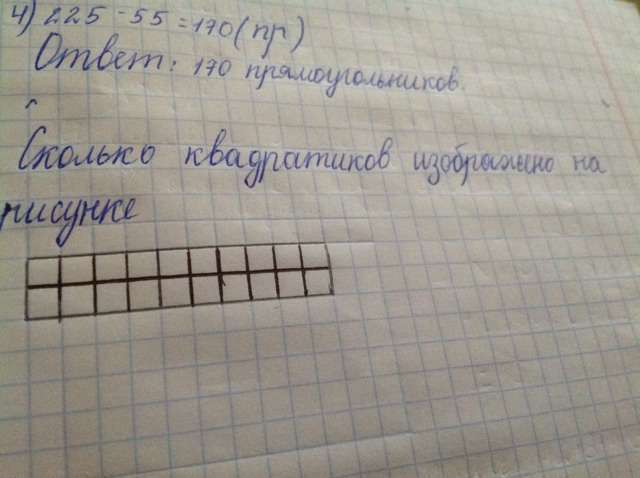 4) 225 - 55 = 170 (пр)
Ответ: 170 прямоугольников.
Сколько квадратиков изображено на
рисунке